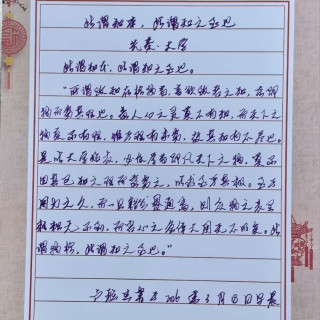 此谓知本，此谓知之至也
先秦·大学
此谓知本，此谓知之至也。
“所谓致知在格物者，言欲致吾之知，在即
物而穷其理也。盖人心之灵莫不有知，而天下之
物莫不有理，惟于理有未穷，故其知有不尽也。
是以大学始教，必使学者即凡天下之物，莫不
因其已知之理而益穷之，以求至乎其极。至于
用力之久，而一旦豁然贯通焉，则众物之表里
精粗无不到，而吾心之全体大用无不明矣。此
谓物格，此谓知之至也。”
月 日早晨